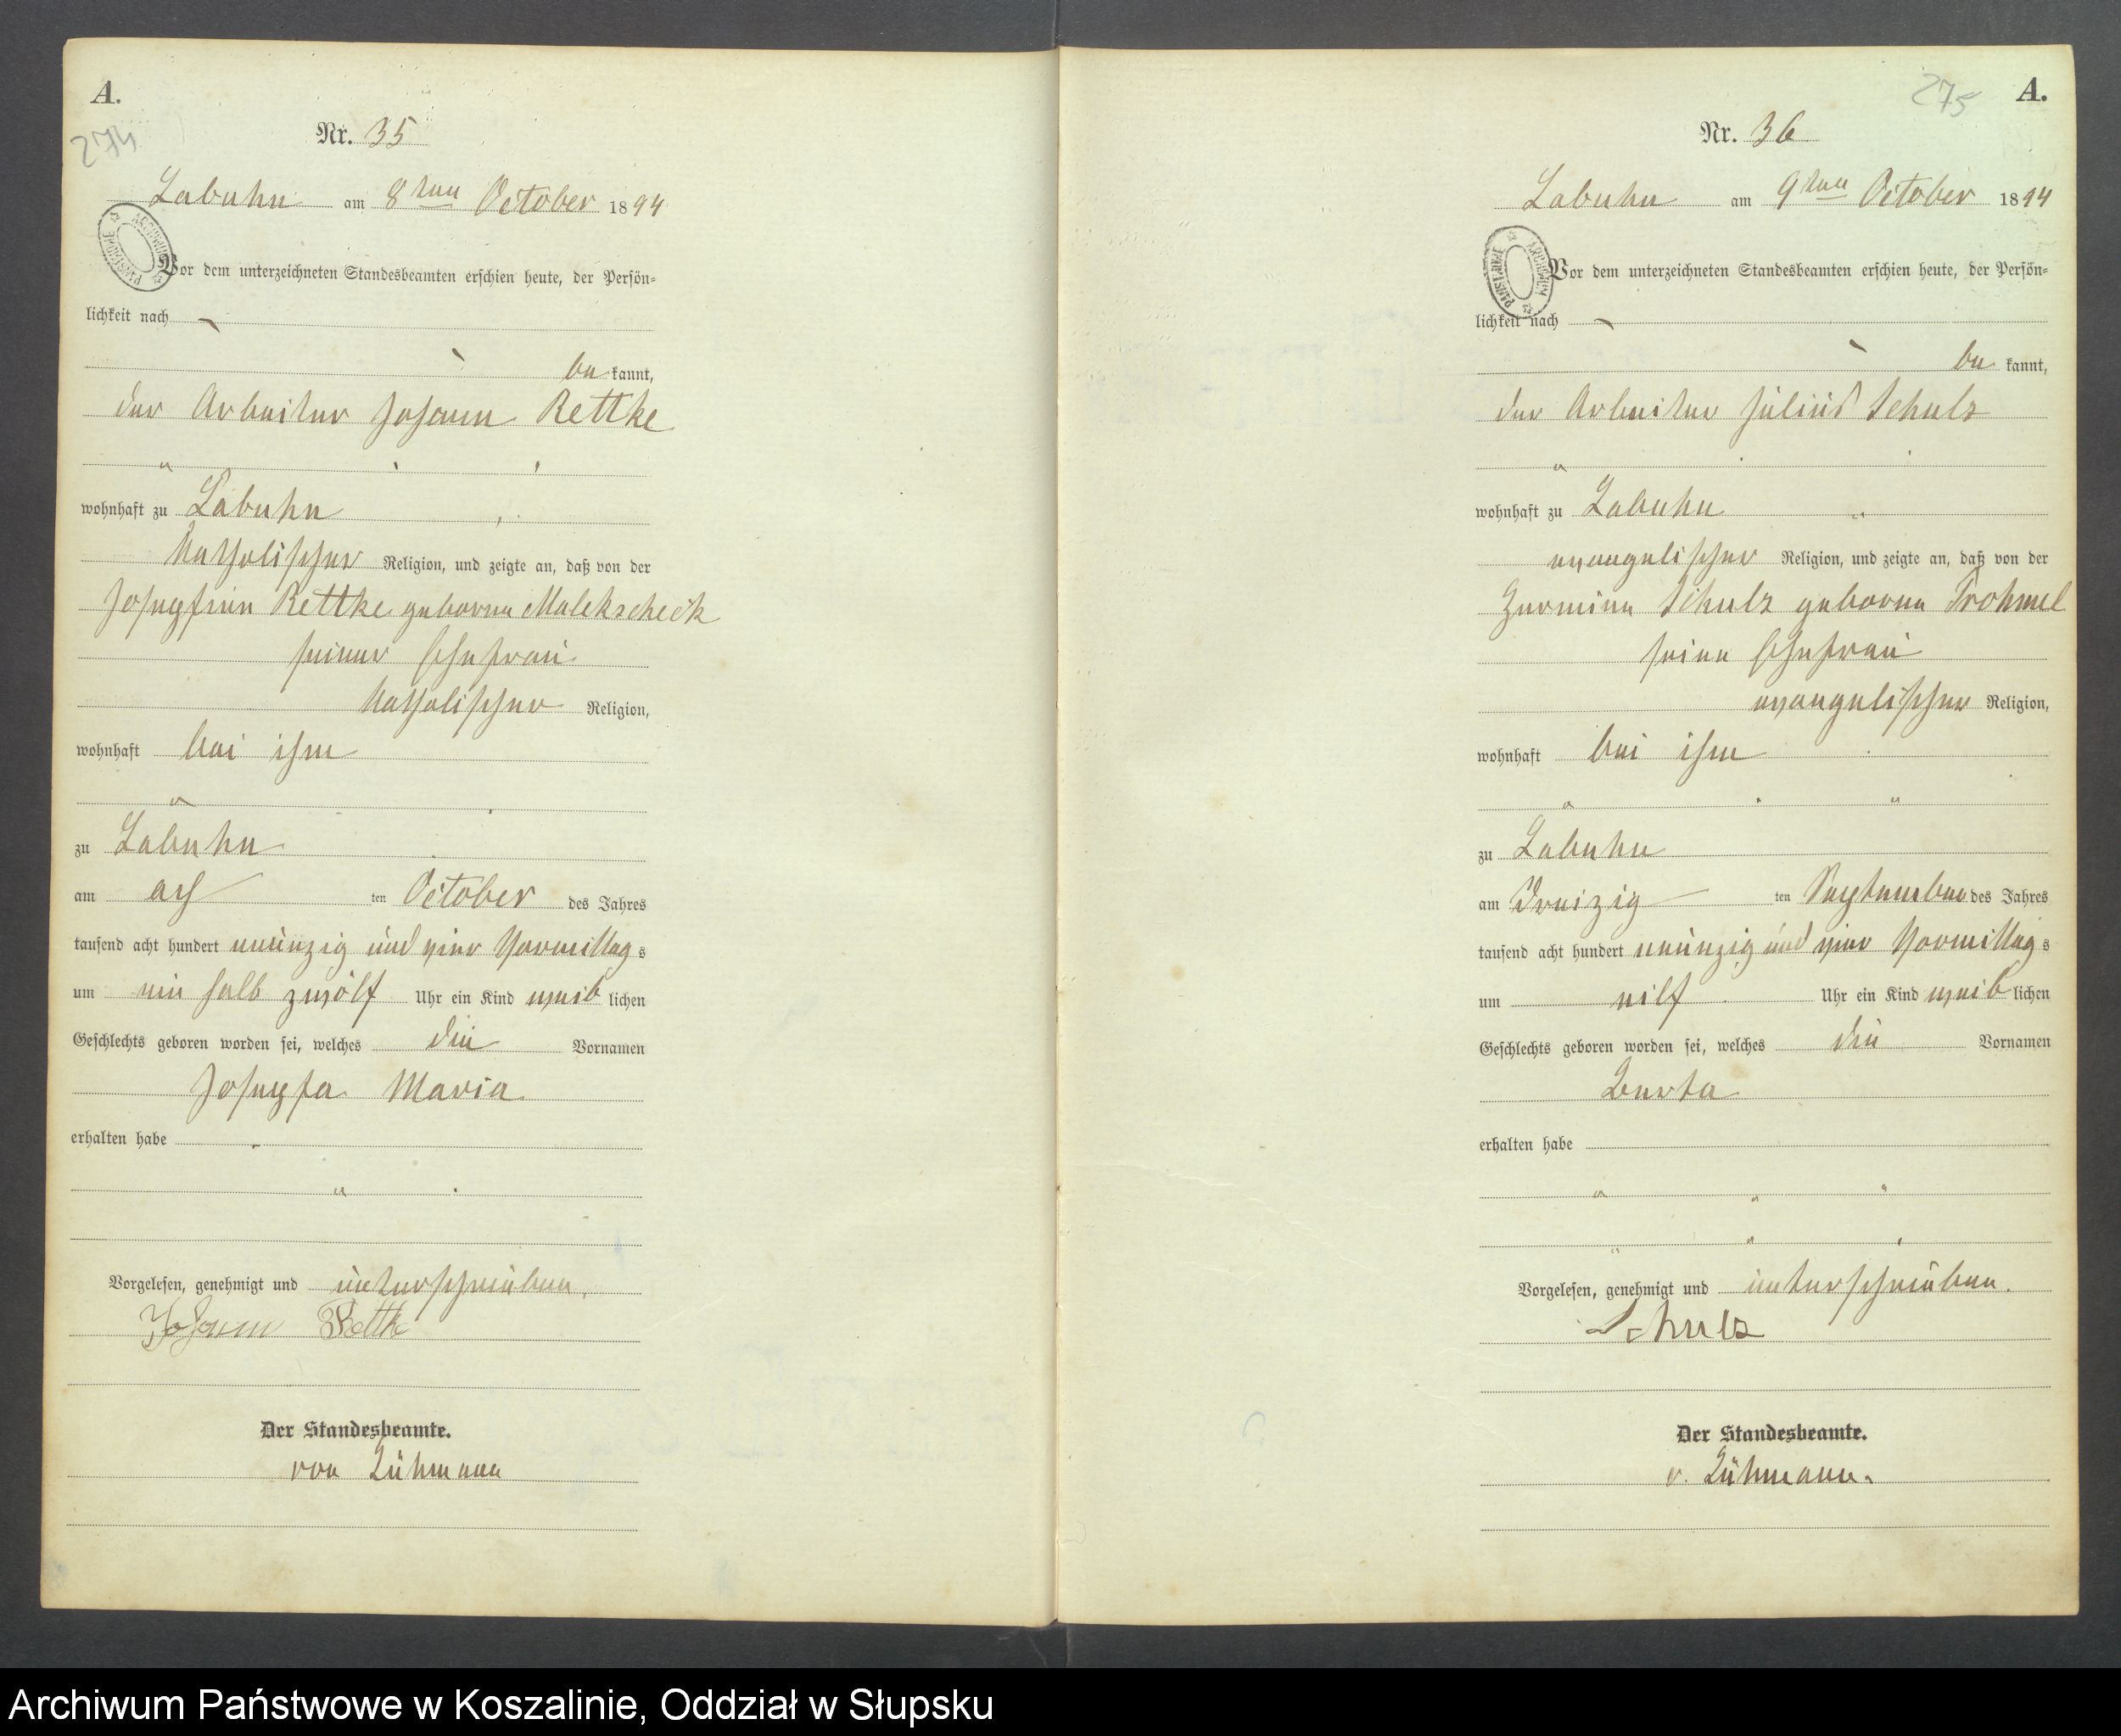 A.
274
Nr. 35
Labuhn am 8ten October 1894
Vor dem unterzeichneten Standesbeamten erschien heute, der Persön=
lichkeit nach
be kannt,
der Arbeiter Johann Rettke
wohnhaft zu Labuhn
katholischer Religion, und zeigte an, daß von der
Josephine Rettke geborne Malekscheck
seiner Ehefrau
katholischer Religion,
wohnhaft bei ihm
zu Labuhn
am ach ten October des Jahres
tausend acht hundert neunzig und vier Vormittag s
um ein halb zwölf Uhr ein Kind weib lichen
Geschlechts geboren worden sei, welches die Vornamen
Josepha Maria
erhalten habe
Vorgelesen, genehmigt und unterschrieben.
Johann Rettke
Der Standesbeamte.
von Lühmann
275
A.
Nr. 36
Labuhn am 9ten October 1894
ARCHIWUM PAŃSTWOWE
Vor dem unterzeichneten Standesbeamten erschien heute, der Persön=
lichkeit nach
be kannt,
der Arbeiter Julius Schulz
wohnhaft zu Labuhn
evangelischer Religion, und zeigte an, daß von der
Hermine Schulz geborne Trohmel
seine Ehefrau
evangelischer Religion,
wohnhaft bei ihm
zu Labuhn
am Dreizig ten September des Jahres
tausend acht hundert neunzig und vier Vormittag s
um eilf Uhr ein Kind weib lichen
Geschlechts geboren worden sei, welches die Vornamen
Berta
erhalten habe
Vorgelesen, genehmigt und unterschrieben.
Schulz
Der Standesbeamte.
v. Lühmann.
Archiwum Państwowe w Koszalinie, Oddział w Słupsku